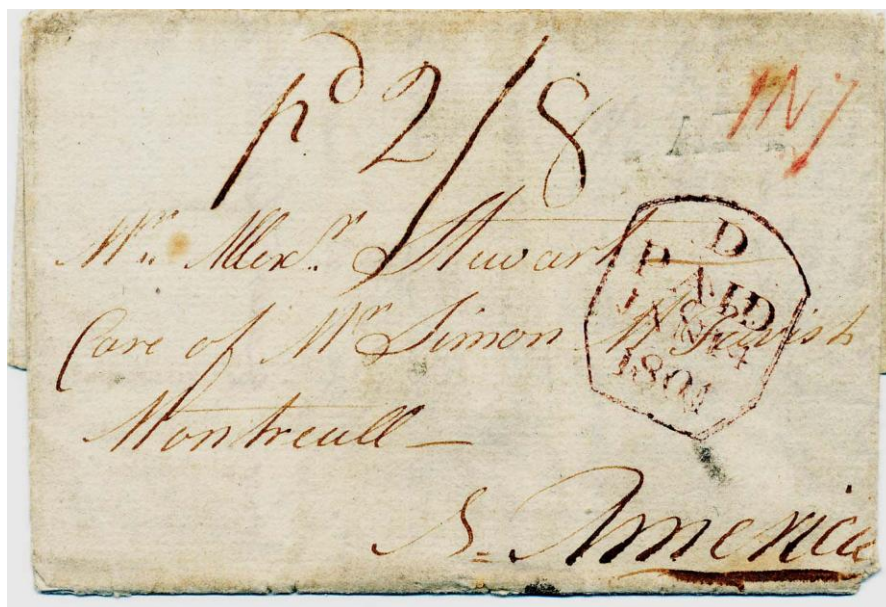 pd 2/8
1N7
Mr. Allexr. Stewart
Care of Mr Simon McTavish
Montreall —
N= America
D
PAID
JAN 14
1801